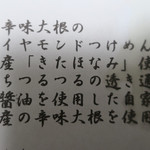 辛味大根の
イヤモンドつけめん
「きたほなみ」使
の透き通
醤油を使用した自家
産の辛味大根を使用